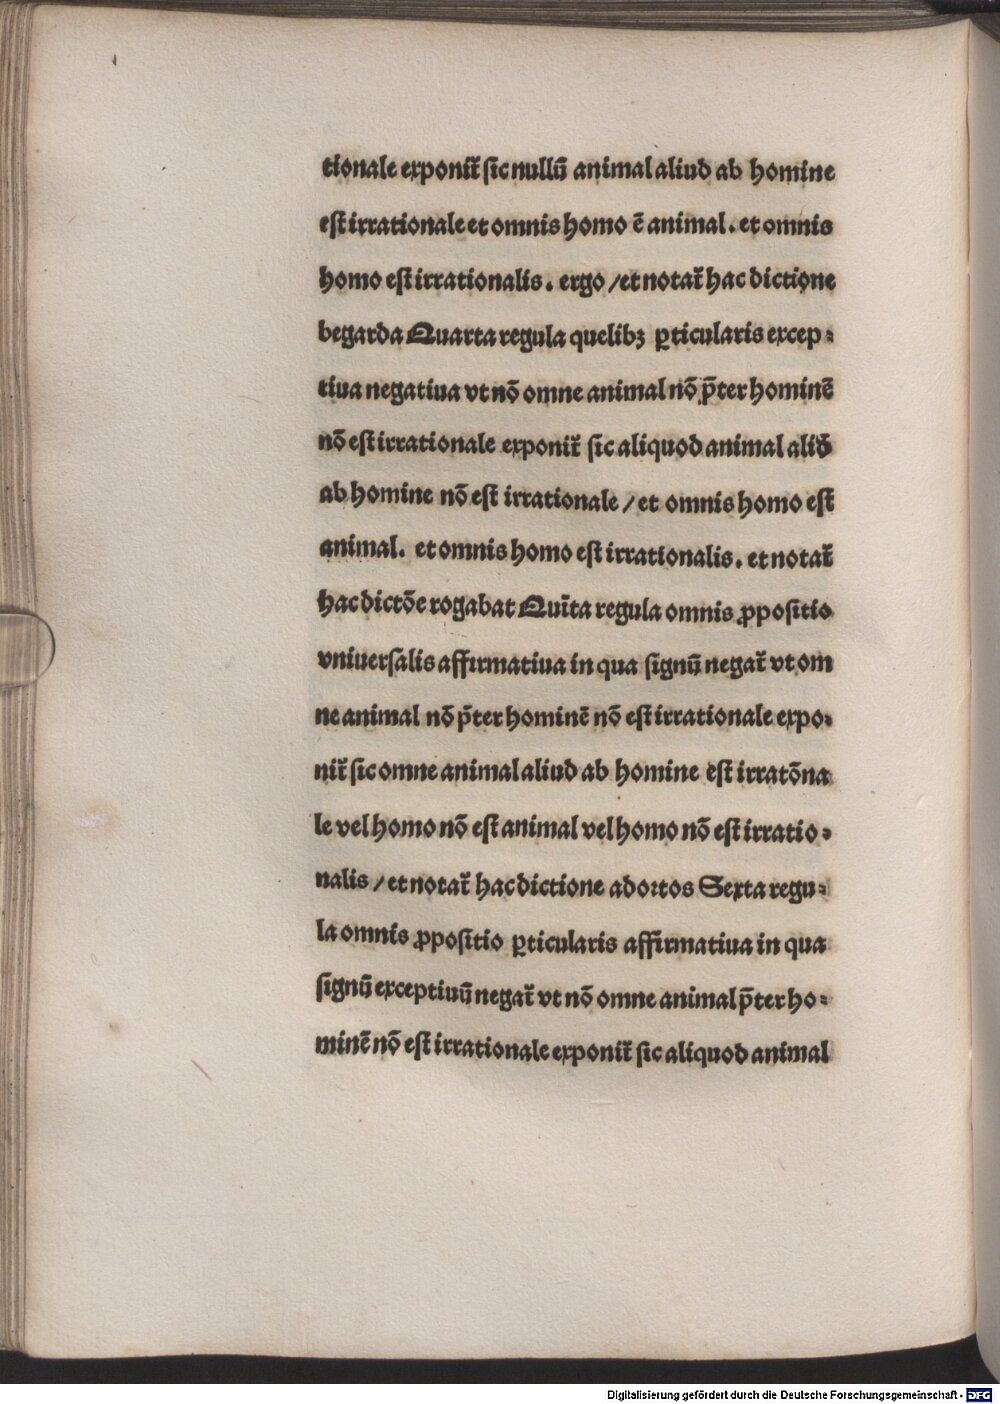 tionale exponit̃ sic nullū animal aliud ab homine
est irrationale et omnis homo ē animal. et omnis
homo est irrationalis. ergo /et notat̃ hac dictione
begarda Quarta regula quelibꝫ ꝑticularis excep⸗
tiua negatiua vt nō omne animal nō p̄ter hominē
nō est irrationale exponit̃ sic aliquod animal aliđ
ab homine nō est irrationale / et omnis homo est
animal. et omnis homo est irrationalis. et notat̃
hac dictōe rogabat Quīta regula omnis ꝓpositio
vniuersalis affirmatiua in qua signū negat̃ vt om
ne animal nō p̄ter hominē nō est irrationale expo⸗
nit̃ sic omne animal aliud ab homine est irratōna
le vel homo nō est animal vel homo nō est irratio⸗
nalis / et notat̃ hac dictione adoꝛtos Sexta regu⸗
la omnis ꝓpositio ꝑticularis affirmatiua in qua
signū exceptiuū negat̃ vt nō omne animal p̄ter ho⸗
minē nō est irrationale exponit̃ sic aliquod animal
Digitalisierung gefördert durch die Deutsche Forschungsgemeinschaft - DFG